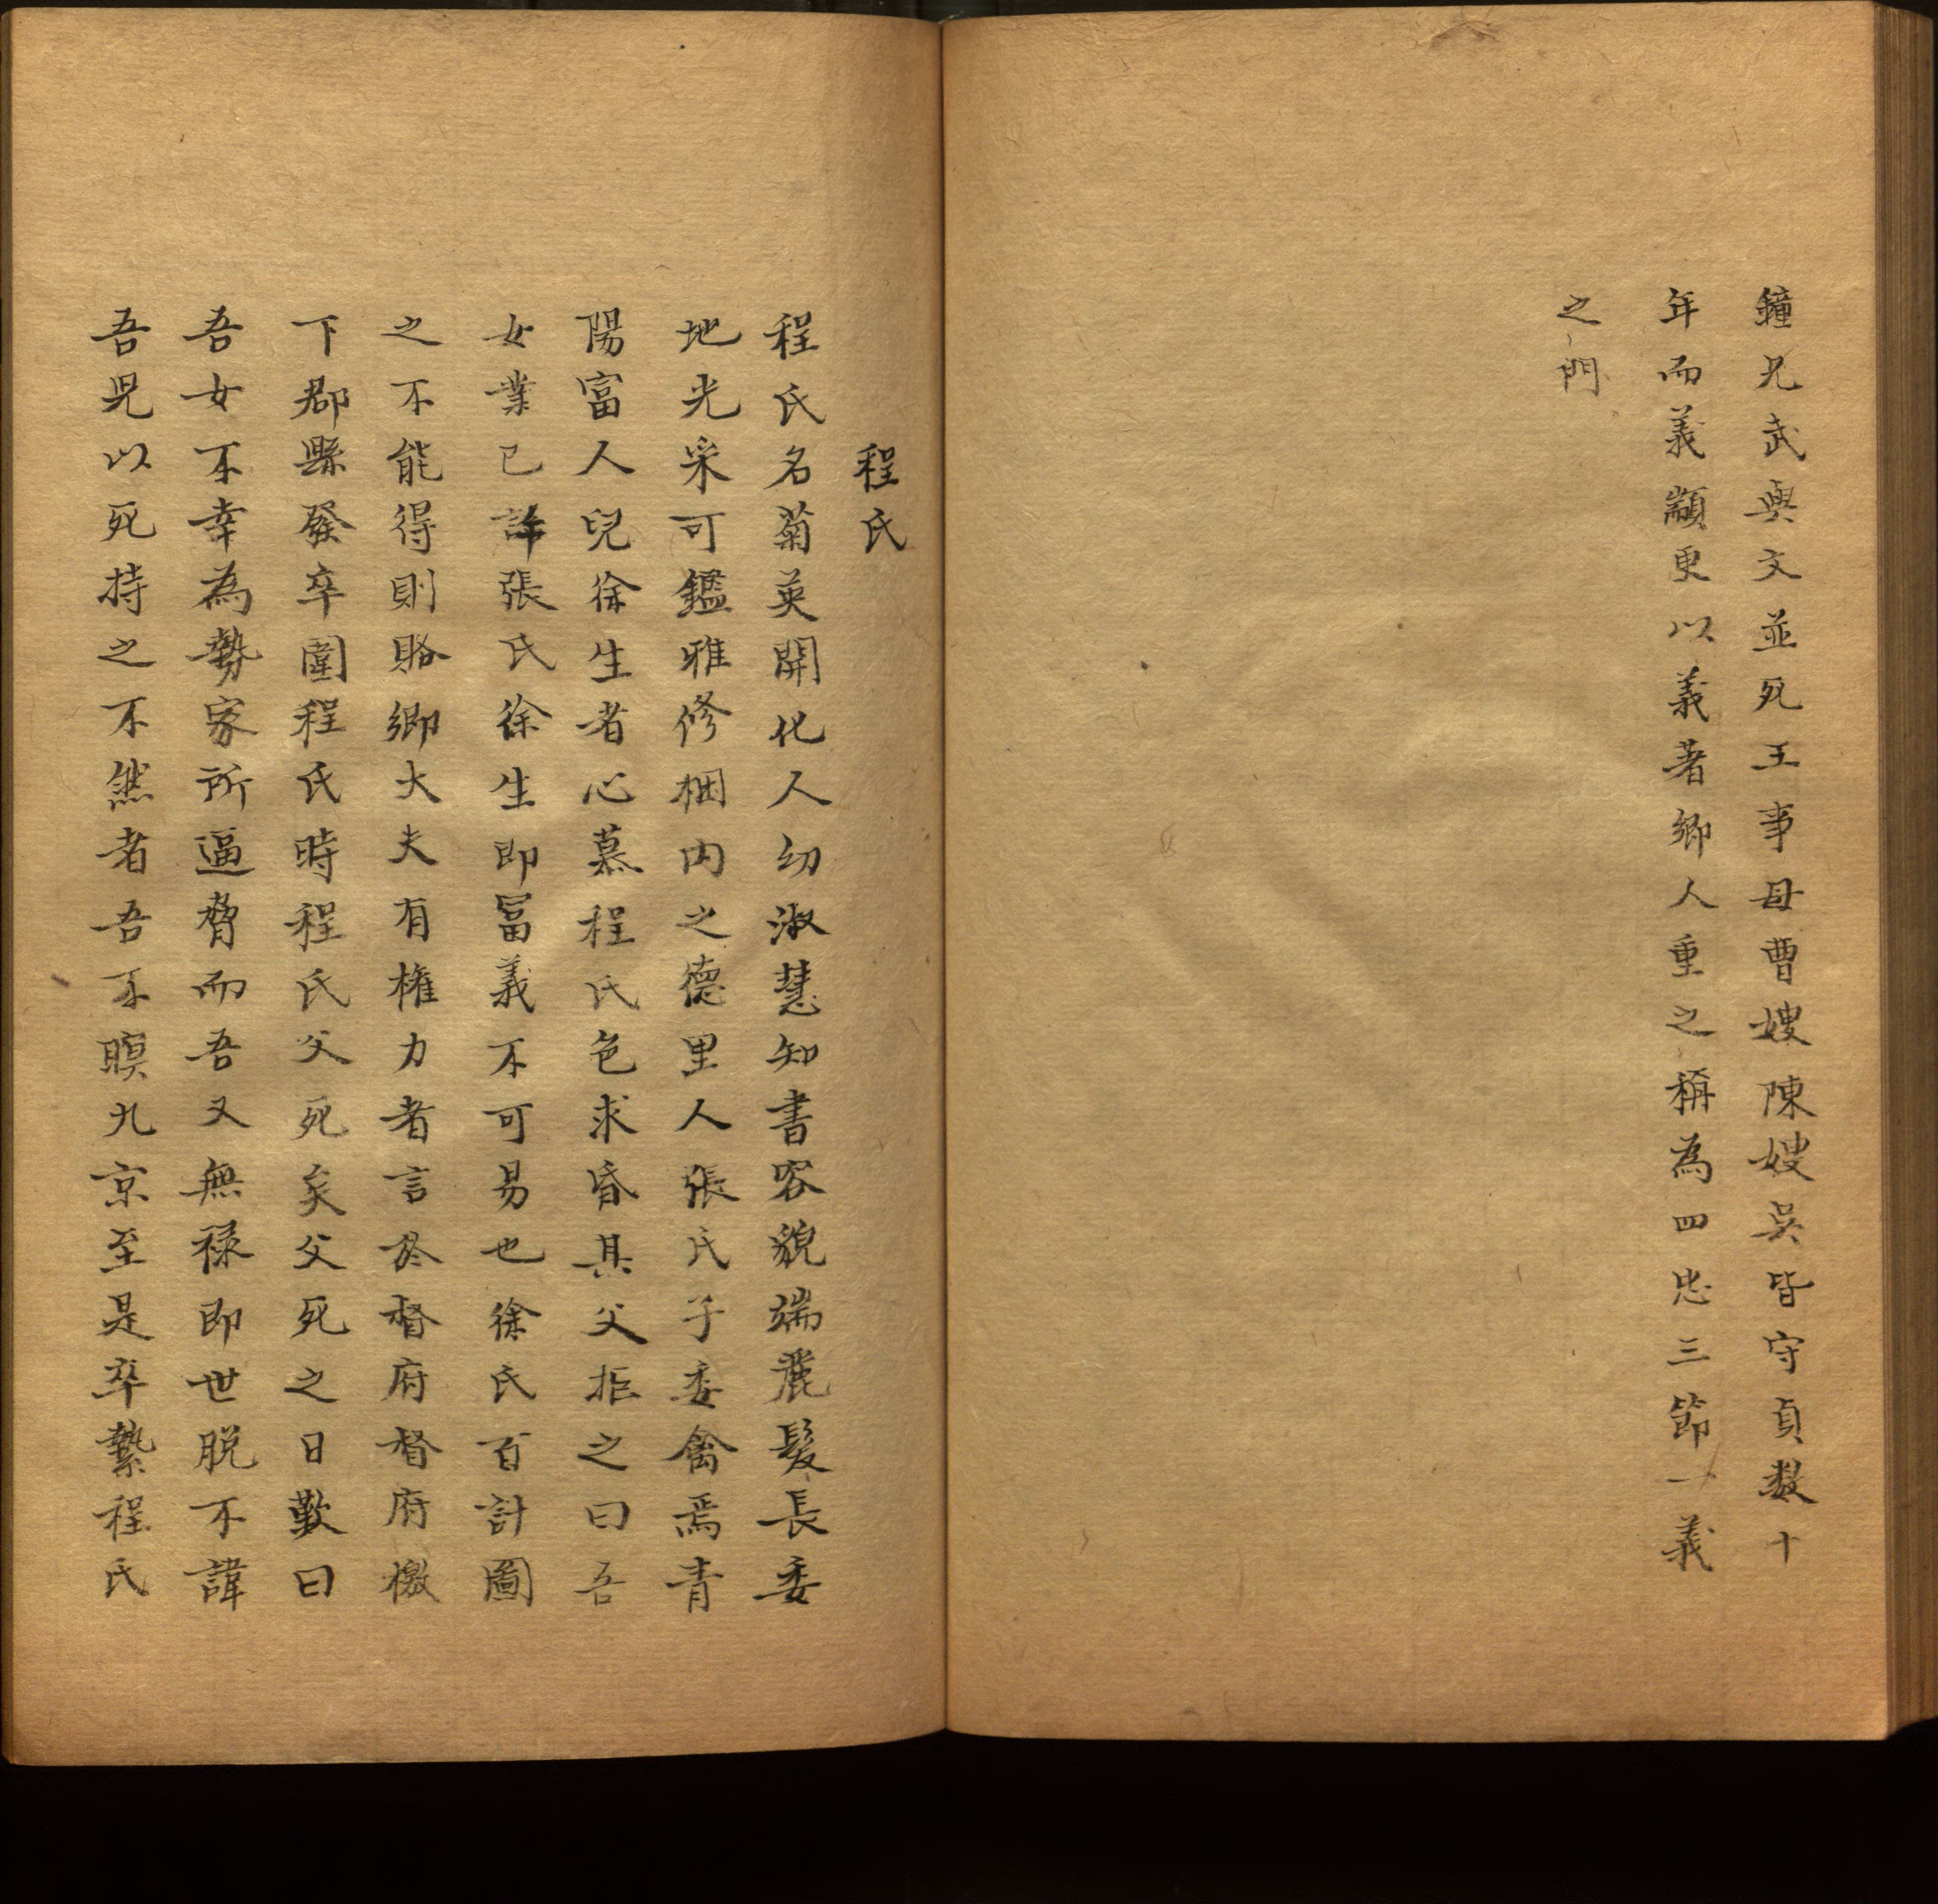 鐘兄武與文並死王事母曹嫂陳嫂吳皆守貞数十
年而義顓更以義著鄉人重之稱為四忠三節一義
之門
程氏
程氏名菊英開化人幼淑慧知書容貌端麗髮長委
地光采可鑑雅修梱内之德里人張氏子委禽焉青
陽富人兒徐生者心慕程氏色求昏其父拒之曰吾
女業已許張氏徐生即冨義不可易也徐氏百計圖
之不能得則賂鄉大夫有權力者言於督府督府檄
下郡縣發卒圍程氏時程氏父死矣父死之日歎曰
吾女不幸為勢家所逼脅而吾又無禄即世脱不諱
吾兒以死持之不然者吾不瞑九京至是卒縶程氏